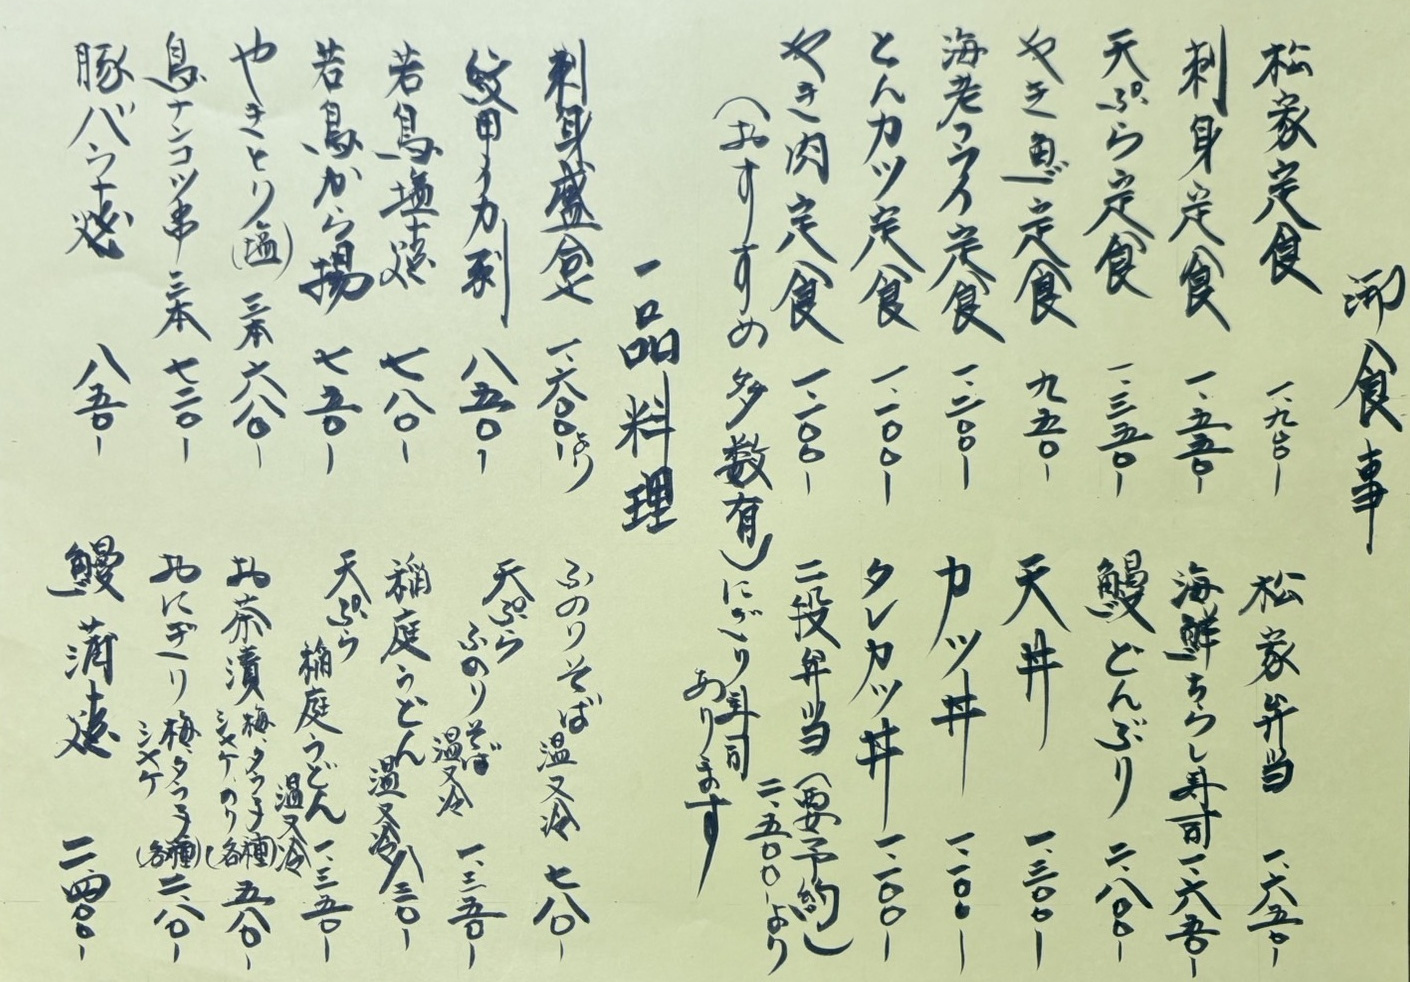 御食事
松家定食 一、九〇〇ー
刺身定食 一、五五〇ー
天ぷら定食 一、三五〇ー
やき魚定食 九五〇ー
海老フライ定食 一、二〇〇ー
とんカツ定食 一、一〇〇ー
やき肉定食 一、一〇〇ー
松家弁当 一、六五〇ー
海鮮ちらし寿司 一、六五〇ー
鰻どんぶり 二、八〇〇ー
天丼 一、三〇〇ー
カツ丼 一、一〇〇ー
タレカツ丼 一、一〇〇ー
二段弁当(要予約)
二、五〇〇ーより
(おすすめ 多数有)にぎり寿司
あります
一品料理
刺身盛合せ 一、六〇〇ーより
紋甲イカ刺 八五〇ー
若鳥塩焼 七八〇ー
若鳥から揚 七五〇ー
やきとり(塩) 三本 六八〇ー
鳥ナンコツ串 三本 七二〇ー
豚バラ焼 八五〇ー
ふのりそば 温又冷 七八〇ー
天ぷら
ふのりそば 温又冷 一、三五〇ー
稲庭うどん 温又冷 八三〇ー
天ぷら
稲庭うどん 温又冷 一、三五〇ー
お茶漬 梅、タラコ シャケ、のり (各種) 五八〇ー
おにぎり 梅、タラコ シャケ (各種) 二八〇ー
鰻蒲焼 二、四〇〇ー